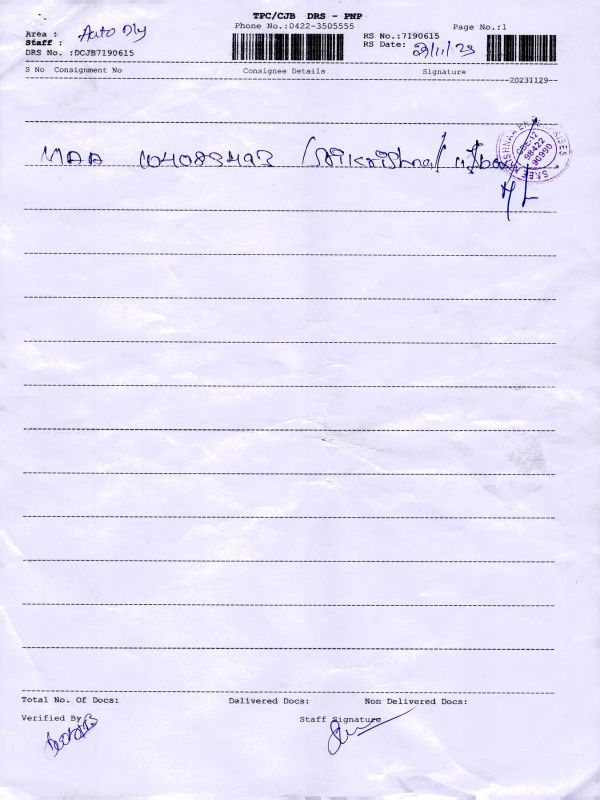 TPC/CJB DRS - PNP
Phone No.:0422-3505555
Page No.:1
Area : Auto Dly
RS No.:7190615
Staff :
RS Date: 29/11/23
DRS No. :DCJB7190615
S No Consignment No Consignee Details Signature
20231129
MAA 104083493 / Srikrishna /
98422
90990
Total No. Of Docs: Delivered Docs: Non Delivered Docs:
Verified By Staff Signature